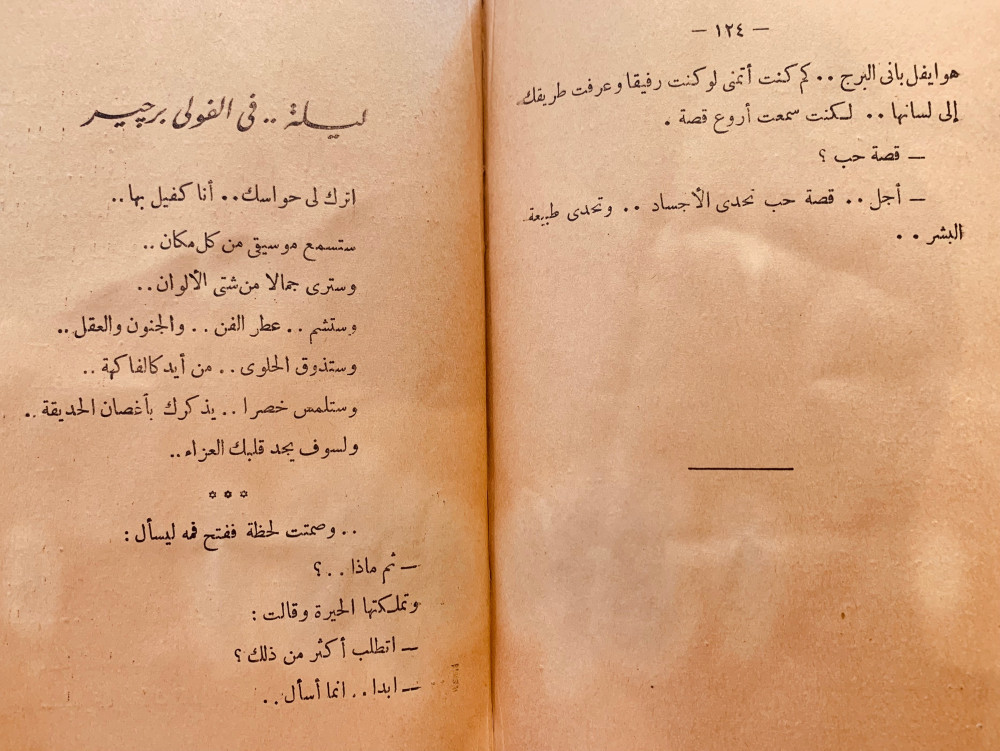 — ١٢٤ —
هو ايفل بانى البرج .. كم كنت أتمنى لو كنت رفيقا وعرفت طريقك
إلى لسانها .. لكنت سمعت أروع قصة .
— قصة حب ؟
— أجل .. قصة حب تحدى الأجساد .. وتحدى طبيعة
البشر ..
ليلة .. فى الفولى برجير
اترك لى حواسك .. أنا كفيل بها ..
ستسمع موسيقى من كل مكان ..
وسترى جمالا من شتى الألوان ..
وستشم .. عطر الفن .. والجنون والعقل ..
وستذوق الحلوى .. من أيد كالفاكهة ..
وستلمس خصرا .. يذكرك بأغصان الحديقة ..
ولسوف يجد قلبك العزاء ..
* * *
.. وصمتت لحظة ففتح فمه ليسأل :
— ثم ماذا .. ؟
وتملكتها الحيرة وقالت :
— اتطلب أكثر من ذلك ؟
— ابدا .. انما أسأل ..